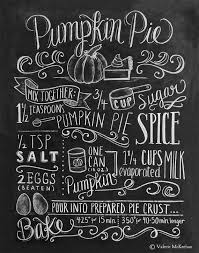 Pumpkin Pie
MIX TOGETHER:
3/4 CUP Sugar
1 1/2 TEASPOONS
PUMPKIN PIE SPICE
1/2 TSP SALT
ONE CAN (15 oz) Pumpkin
1 1/4 CUPS MILK evaporated
2 EGGS (BEATEN)
POUR INTO PREPARED PIE CRUST...
Bake 425° 15 min. 350° 40-50 min. longer
© Valerie McKeehan